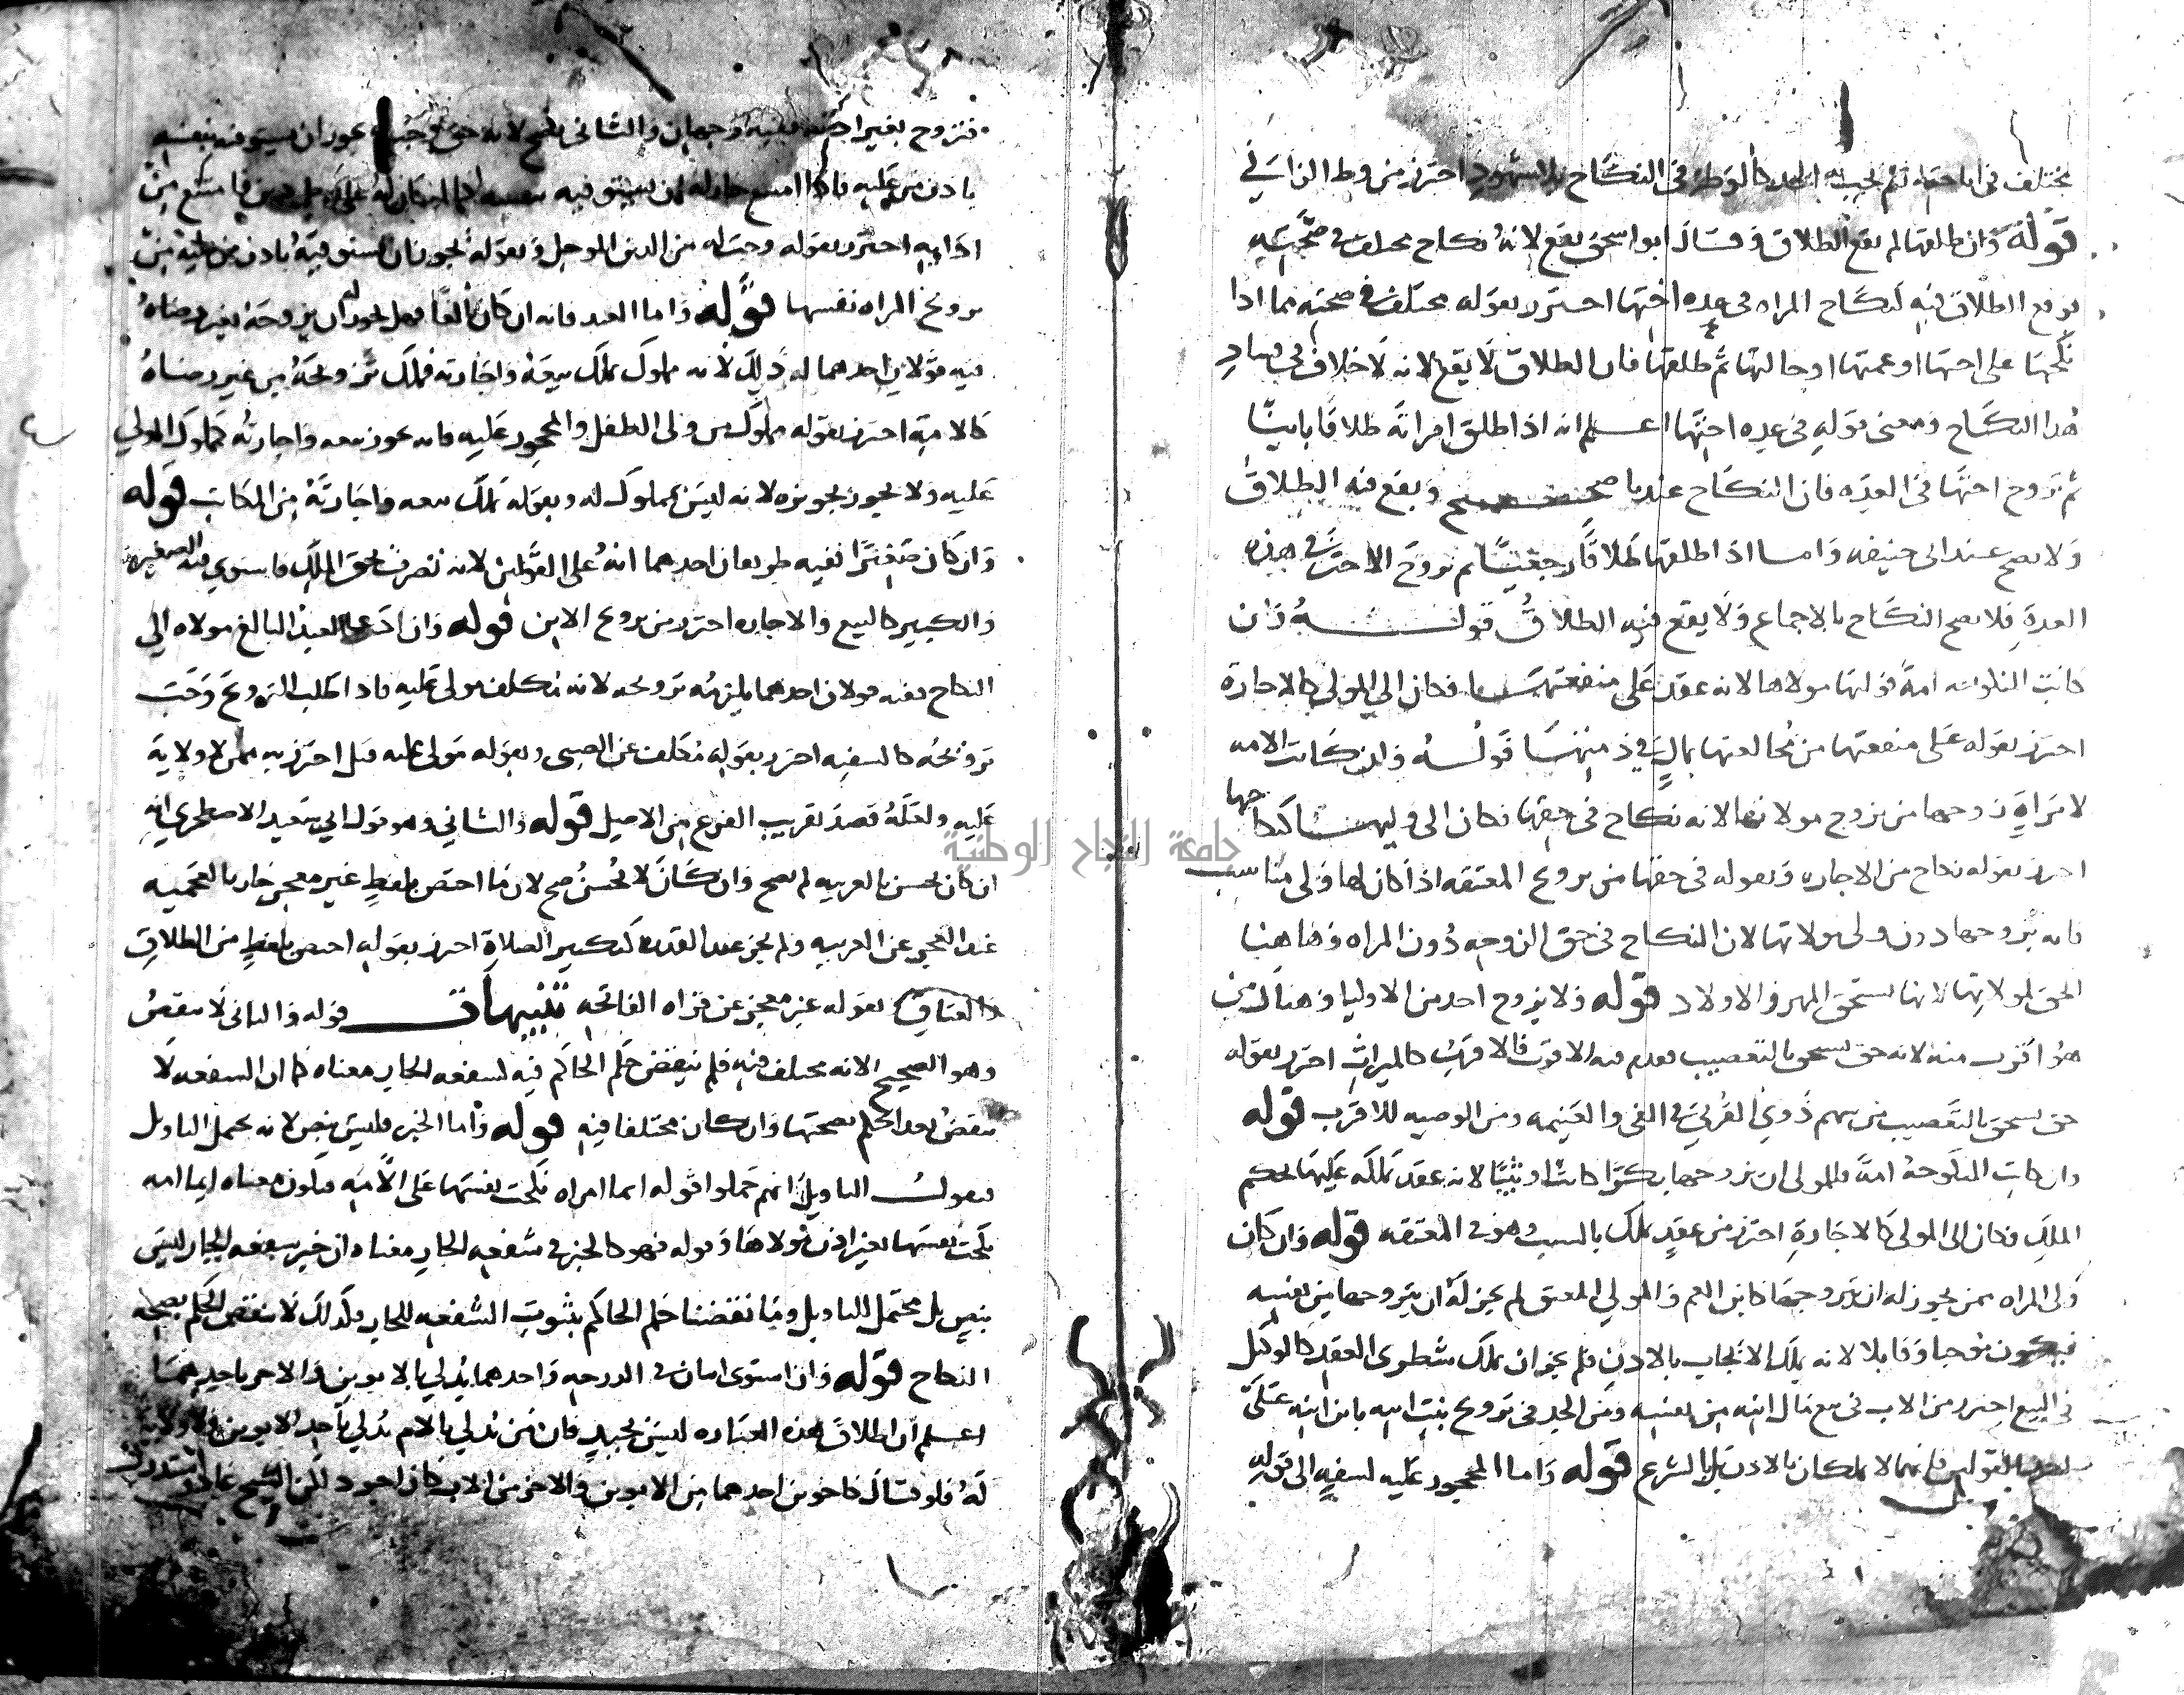 مختلف في اباحته لم يجب به الحد كالوطء في النكاح بلا شهود احترز من وطء الزاني
قوله وان طلقها لم يقع الطلاق وقال ابو اسحق يقع لانه نكاح مختلف في صحته
فوقع الطلاق فيه كنكاح المراه في عده اختها احترز بقوله مختلف في صحته مما اذا
نكحها على اختها او عمتها او خالتها ثم طلقها فان الطلاق لا يقع لانه لا خلاف في فساد
هذا النكاح ومعنى قوله في عده اختها اعلم انه اذا طلق امراته طلاقا باينا
ثم تزوج اختها في العده فان النكاح عندنا صحيح ويقع فيه الطلاق
ولا يصح عند ابي حنيفه واما اذا طلقها طلاقا رجعيا ثم تزوج الاخت في هذه
العدة فلا يصح النكاح بالاجماع ولا يقع فيه الطلاق قوله وان
كانت المنكوحه امة فوليها مولاها لانه عقد على منفعتها فكان الى المولى كالاجارة
احترز بقوله على منفعتها من مخالعتها بمال في ذمتها قوله وان كانت الامه
لامراة زوجها من يزوج مولاتها لانه نكاح في حقها فكان الى وليها كنكاحها
احترز بقوله نكاح من الاجاره وبقوله في حقها من تزويج المعتقه اذا كان لها ولي مناسب
فانه يزوجها دون ولي مولاتها لان النكاح في حق الزوجه دون المراه وهاهنا
الحق لمولاتها لانها تستحق المهر والاولاد قوله ولا يزوج احد من الاوليا وهناك من
هو اقرب منه لانه حق يستحق بالتعصيب فقدم فيه الاقرب فالاقرب كالميراث احترز بقوله
حق يستحق بالتعصيب من سهم ذوي القربى في الفي والغنيمه ومن الوصيه للاقرب قوله
وان كانت المنكوحة امة فللمولى ان يزوجها بكرا كانت او ثيبا لانه عقد تملكه عليها بحكم
الملك فكان الى المولى كالاجارة احترز من عقد يملك بالسبب وهو في المعتقه قوله وان كان
ولي المراه ممن يجوز له ان يتزوجها كابن العم والمولى المعتق لم يجز له ان يتزوجها من نفسه
فيكون موجبا وقابلا لانه يملك الايجاب بالاذن فلم يجز ان يملك شطري العقد كالوكيل
في البيع احترز من الاب في بيع مال ابنه من نفسه ومن الجد في تزويج بنت ابنه بابن ابنه على
احد القولين فانهما لا يملكان بالاذن بل بالشرع قوله واما المحجور عليه لسفه الى قوله
فتزوج بغير اذنه ففيه وجهان والثاني يصح لانه حق وجب يجوز ان يستوفيه بنفسه
باذن من عليه فاذا امتنع جاز له ان يستوفيه بنفسه كما لو كان له على رجل دين فامتنع من
ادايه احترز بقوله وجب له من الدين الموجل وبقوله يجوز ان يستوفيه باذن من عليه من
تزويج المراه نفسها قوله واما العبد فانه ان كان بالغا فهل يجوز له ان يزوجه بغير رضاه
فيه قولان احدهما له ذلك لانه مملوك يملك بيعه واجارته فملك تزويجه من غير رضاه
كالامة احترز بقوله مملوك من ولي الطفل والمحجور عليه فانه يجوز بيعه واجارته لمملوك المولى
عليه ولا يجوز تزويجه لانه ليس بمملوك له وبقوله يملك بيعه واجارته من المكاتب قوله
وان كان صغيرا ففيه طريقان احدهما انه على القولين لانه تصرف بحق الملك فاستوى فيه الصغير
والكبير كالبيع والاجاره احترز من تزويج الابن قوله وان ادعى العبد البالغ مولاه الى
النكاح ففيه قولان احدهما يلزمه تزويجه لانه مكلف مولى عليه فاذا طلب التزويج وجب
تزويجه كالسفيه احترز بقوله مكلف عن الصبي وبقوله مولى عليه قيل احترز به ممن لا ولاية
عليه ولعله قصد تقريب الفرع من الاصل قوله والثاني وهو قول ابي سعيد الاصطخري انه
ان كان يحسن بالعربيه لم يصح وان كان لا يحسن صح لان ما اختص بلفظ غير معجز جاز بالعجميه
عند العجز عن العربيه ولم يجز عند القدره كتكبير الصلاة احترز بقوله اختص بلفظ من الطلاق
والعتاق بقوله غير معجز عن قراه الفاتحه تنبيهات قوله والثاني لا ينقض
وهو الصحيح لانه مختلف فيه فلم ينقض حكم الحاكم فيه كشفعه الجار معناه كما ان الشفعه لا
تنقض بعد الحكم بصحتها وان كان مختلفا فيه قوله واما الخبر فليس بنص لانه يحتمل التاويل
فيقول التاويل انهم حملوا قوله ايما امراه نكحت نفسها على الامه فيكون معناه ايما امه
نكحت نفسها بغير اذن مولاها وقوله فهو كالخبر في شفعه الجار معناه ان خبر شفعه الجار ليس
بنص بل محتمل التاويل وما نقضنا حكم الحاكم بثبوت الشفعه للجار فكذلك لا ننقض الحكم بصحه
النكاح قوله وان استوى اثنان في الدرجه واحدهما يدلي بالابوين والاخر باحدهما
اعلم ان اطلاق هذه العباره ليس بجيد فان من يدلي بالام يدلي باحد الابوين ولا ولاية
له فلو قال كاخوين احدهما من الابوين والاخر من الاب كان اجود لكن الشيخ استدرك